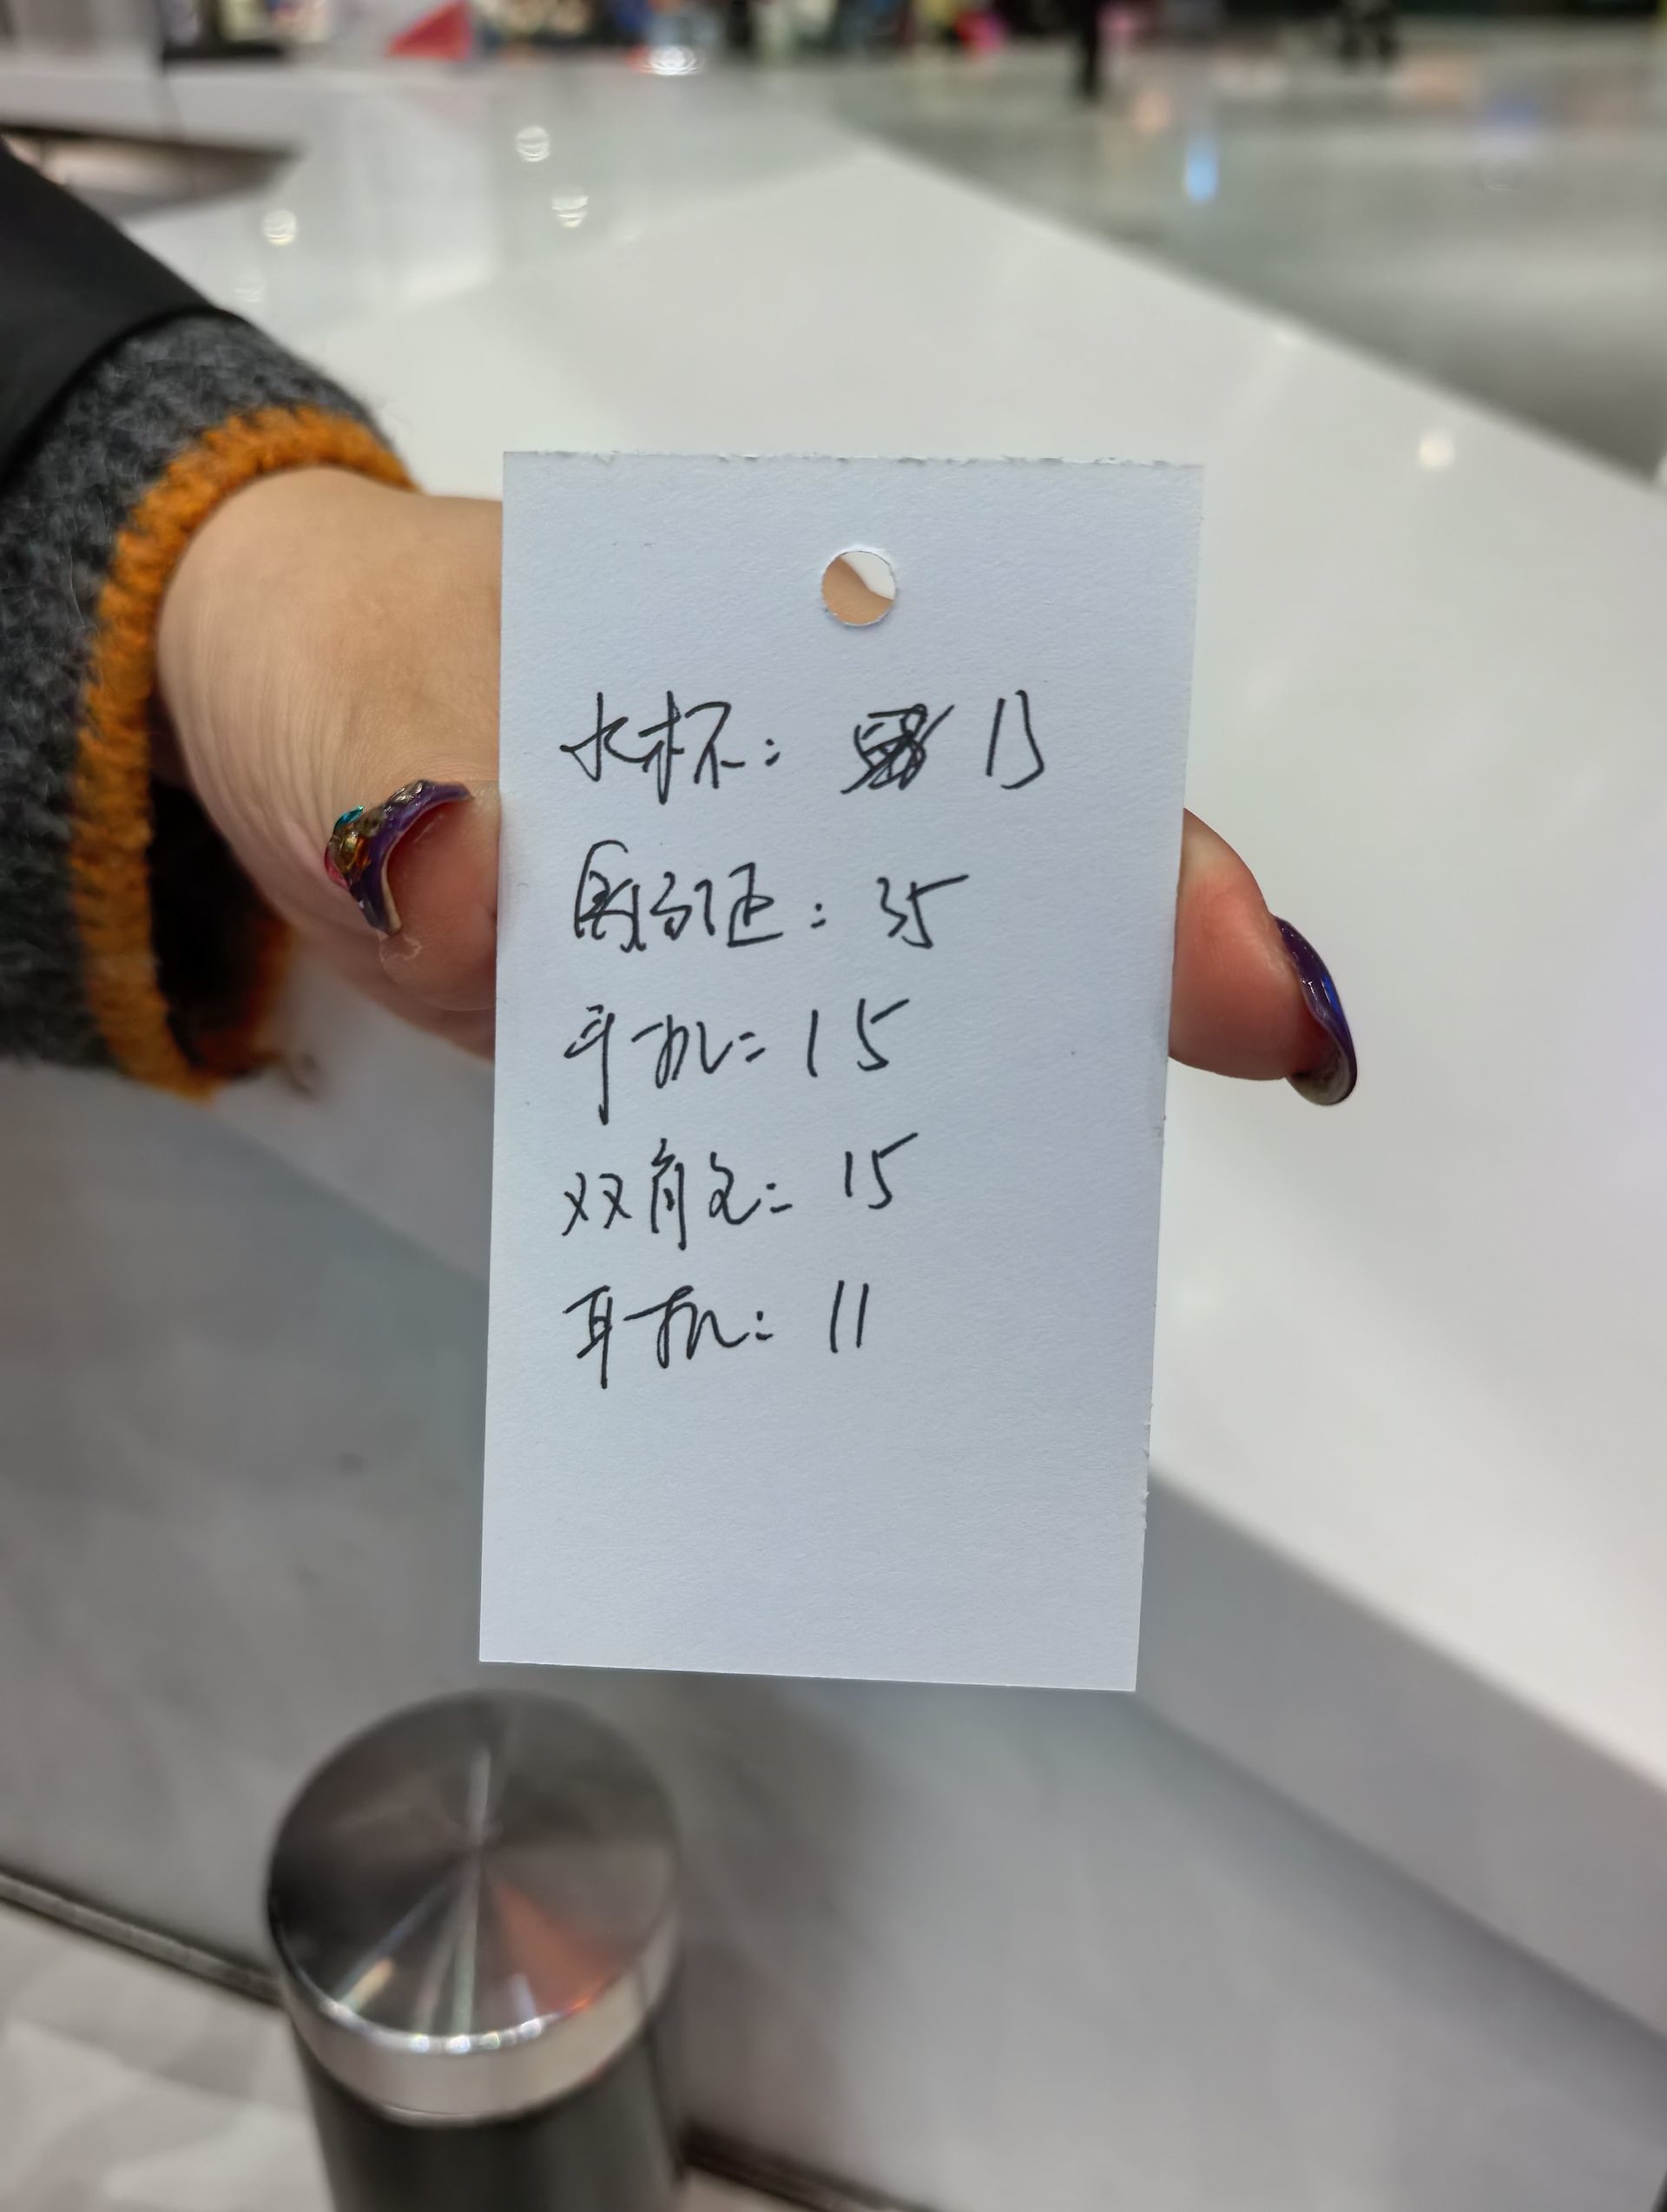 水杯: 13
身份证: 35
手机: 15
双肩包: 15
耳机: 11